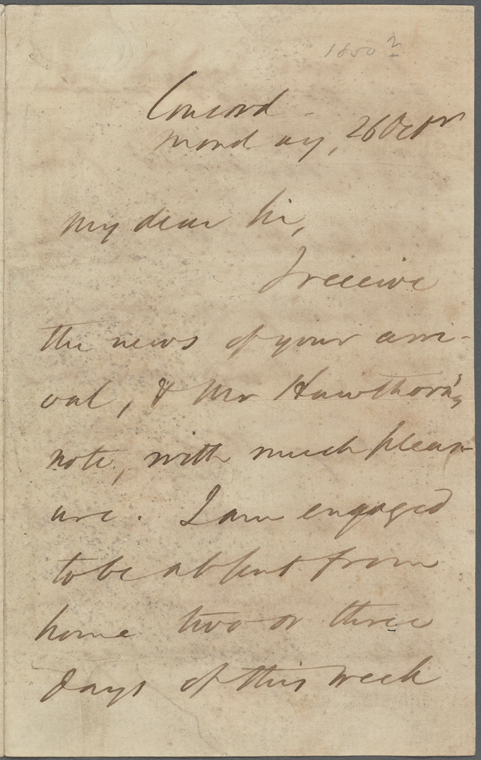 1850?
Concord
Monday, 26 Octr
My dear Sir,
I receive
the news of your arri-
val, & Mr Hawthorn's
note, with much pleas-
ure. I am engaged
to be absent from
home two or three
days of this week